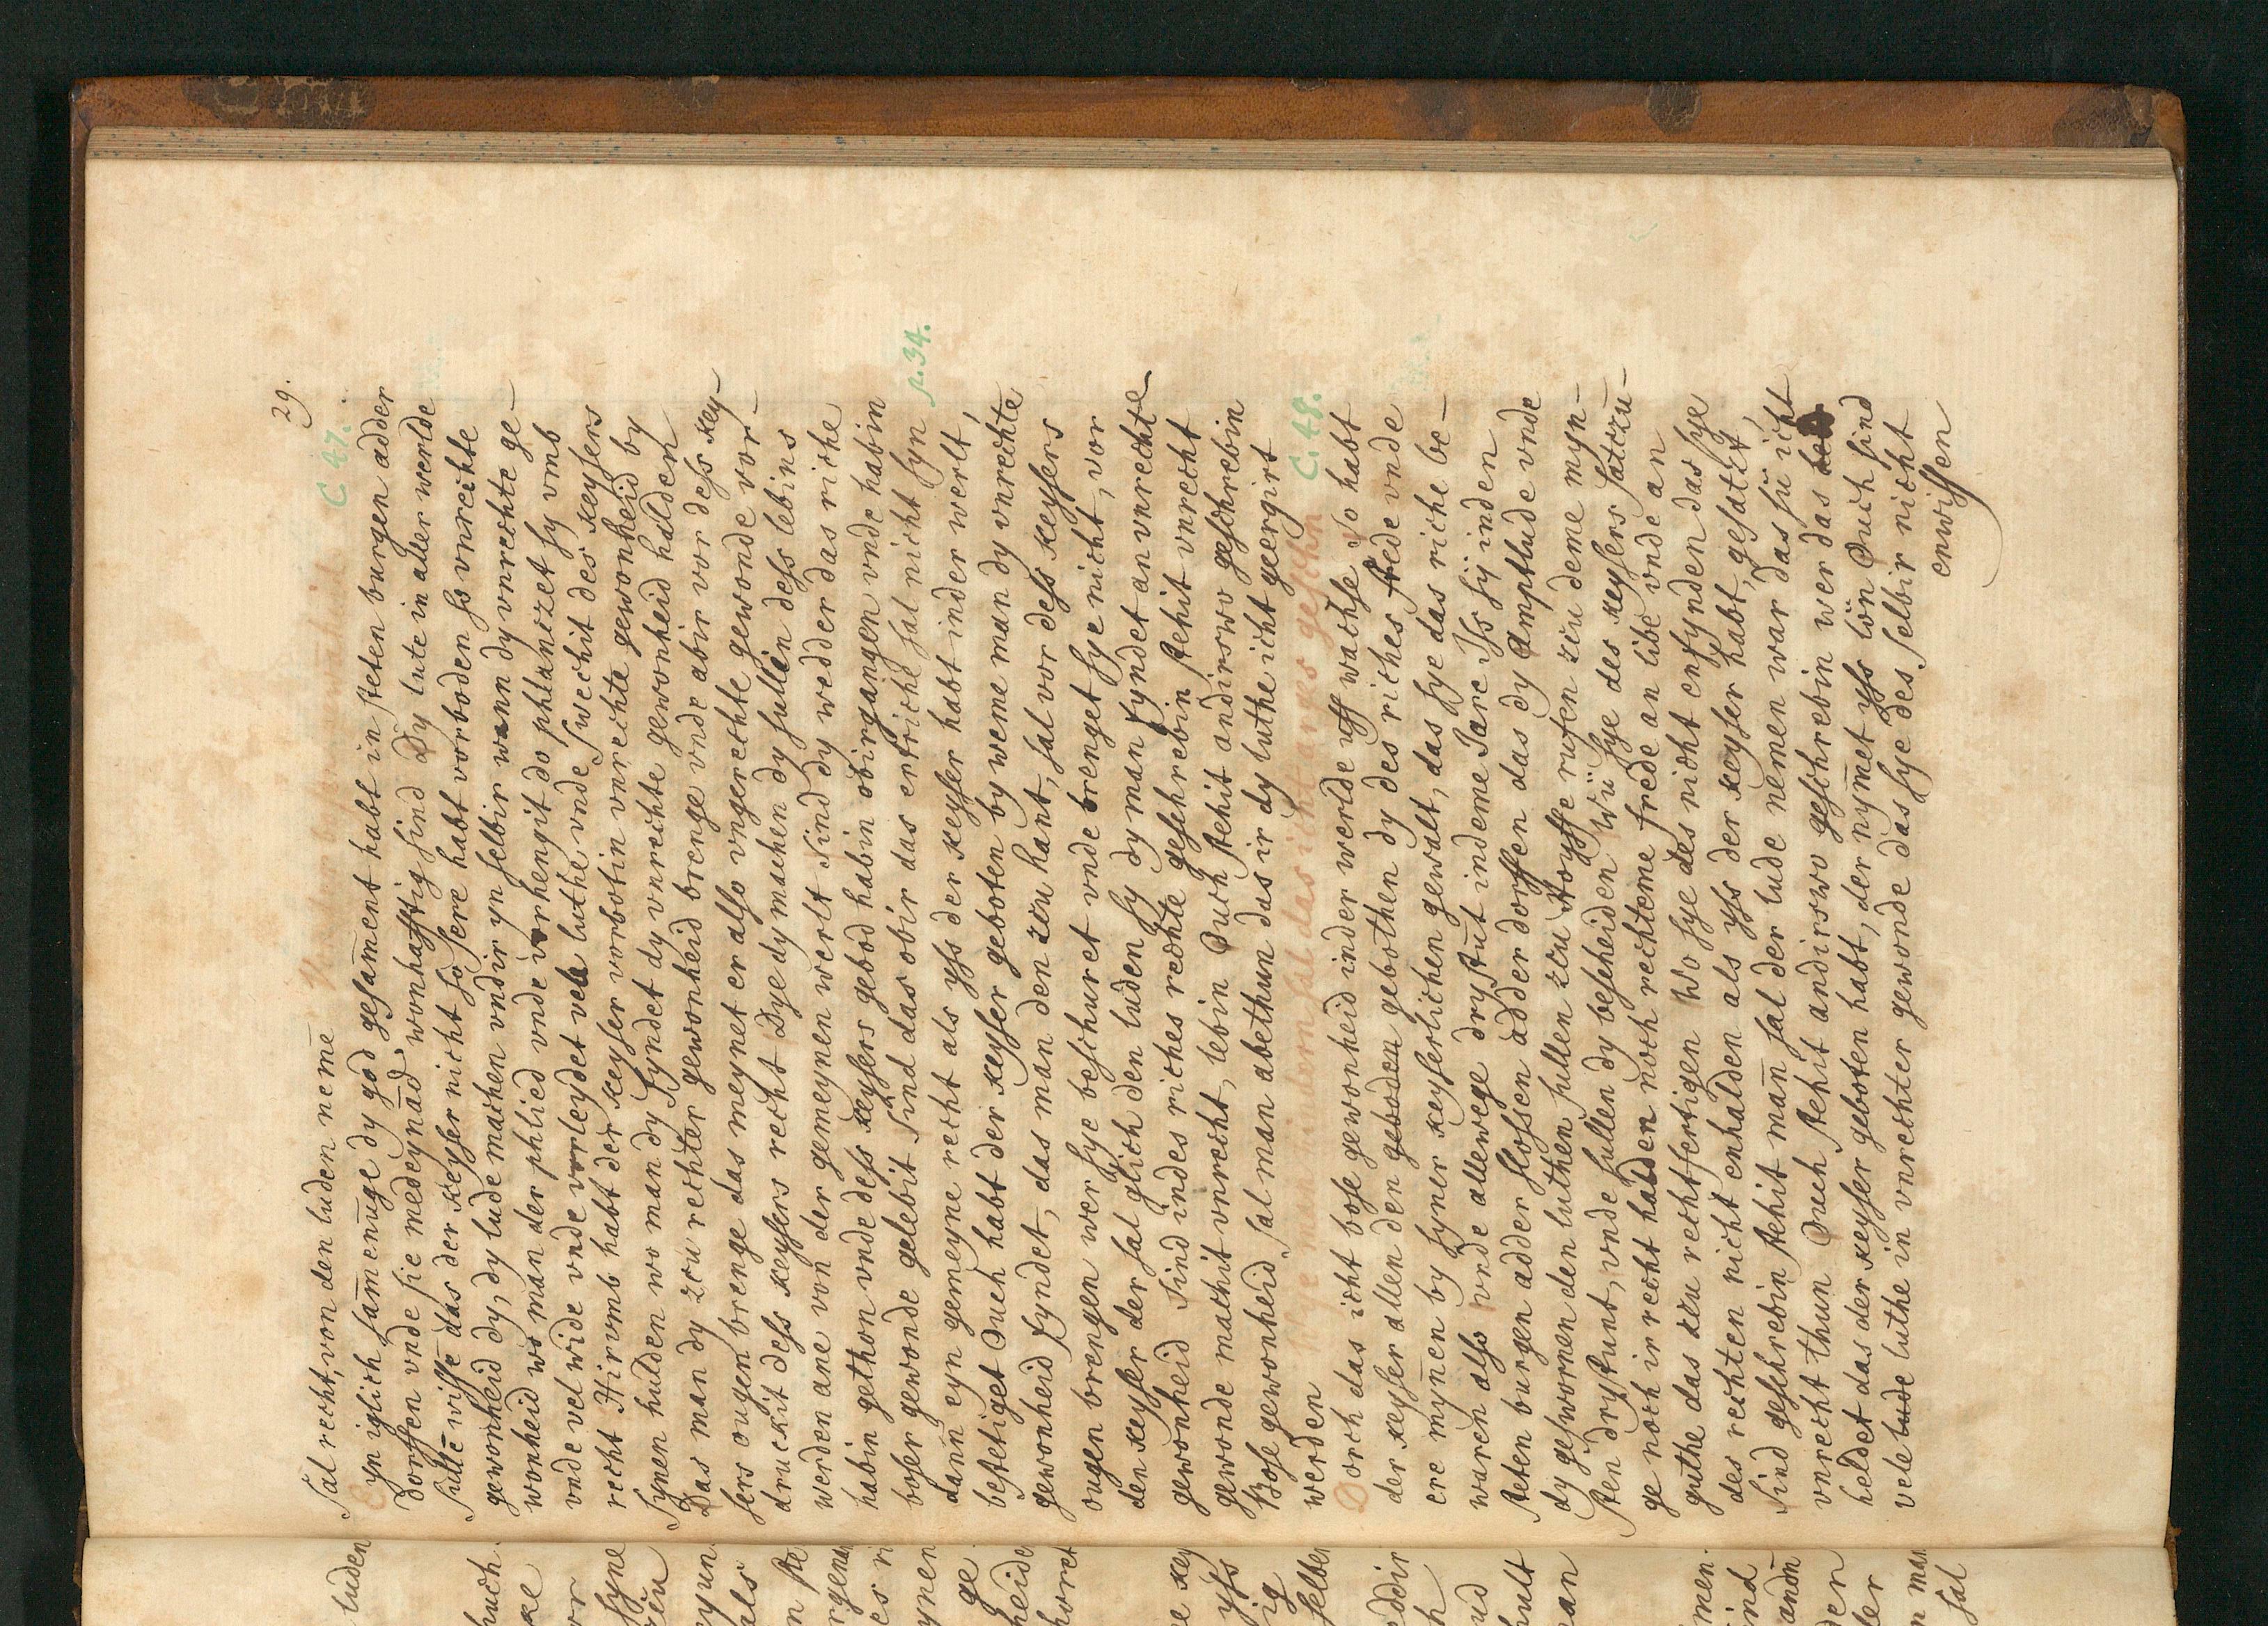 29.
sal recht, von den luden neme
C 47.
Eyn iglich sammenunge dy god gesament habt in steten burgen adder
dorffen vnde sie medeynand wonhafftig sind Dy lute in aller werlde
sulle wisse das der keyser nicht so sere habt vorboden so vnrechte
gewonheid dy, dy lude machen vndir yn selbir wann dy vnrechte ge-
wonheid wo man der phlied vnde vorhengit do phlanczet sy vmb
vnde vel wide vnde vorleydet vele luthe vnde swechit des keysers
recht Hirvmb habt der keyser vorbotin vnrechte gewonheid by
synen hulden wo man dy fyndet dy vnrechte gewonheid halden
Das man dy zcu rechter gewonheid brenge vnde abir vor dess key-
sers ougen brenge das meynet er also vngerechte gewonde vor-
druckit dess keysers recht Dye dy machen dy sullin dess lebins
werden ane von der gemeynen werlt Sind dy wedder das riche
habin gethon vnde dess keysers gebod habin obirgangen vnde habin
boser gewonde gelebit Sind das obir das ertriche sal nicht syn
p. 34.
dann eyn gemeyne recht als yss der keyser habt inder werlt,
bestetiget Ouch habt der keyser geboten by weme man dy vnrechte
gewonheid fyndet, das man den zcu hant, sal vor dess keysers
ougen brengen wer sye beschuret vnde brenget sye nicht, vor
den keyser der sal glich den luden sy dy man fyndet an vnrechte
gewonheid Sind indes riches rechte geschrebin stehit vnrecht
gewonde machit vnrecht, lebin Ouch stehit andirswo geschrebin
Bose gewonheid sal man abethun das ir dy luthe icht geergirt
werden
C. 48.
Dorch das icht bose gewonheid inder werlde uff wachse so habt
der keyser allen den geboden gebothen dy des riches frede vnde
ere mynnen by syner keyserlichen gewalt, das sye das riche be-
waren also vnde allewege dry stut indeme Jare Iss sy inden
steten burgen adder slossen adder dorffen das dy amptlude vnde
dy geswornen den luthen sullen zcu hoyffe rufen zcu deme myn-
sten drystunt, vnde sullen dy bescheiden wü sye des keysers satczu-
ge noch ir recht halden noch rechteme frede an libe vnde an
guthe das zcu rechtfertigen Wo sye des nicht enfynden das sye
des rechten nicht enhalden als yss der keyser habt, gesatczt,
Sind geschrebin stehit man sal der lude nemen war das sü icht
vnrecht thun Ouch stehit andirswo geschrebin wer das
heldet das der keyser geboten habt, der nymet yss lön Ouch sind
vele lude luthe in vnrechter gewonde das sye des selbir nicht
enwissen
luden
huch
ke
or
syne
eyun
als
ynen
ge
heide
horet
yss
ig
selber
eddir
h
ud
hult
an
men
ind
den
ler
man
sal